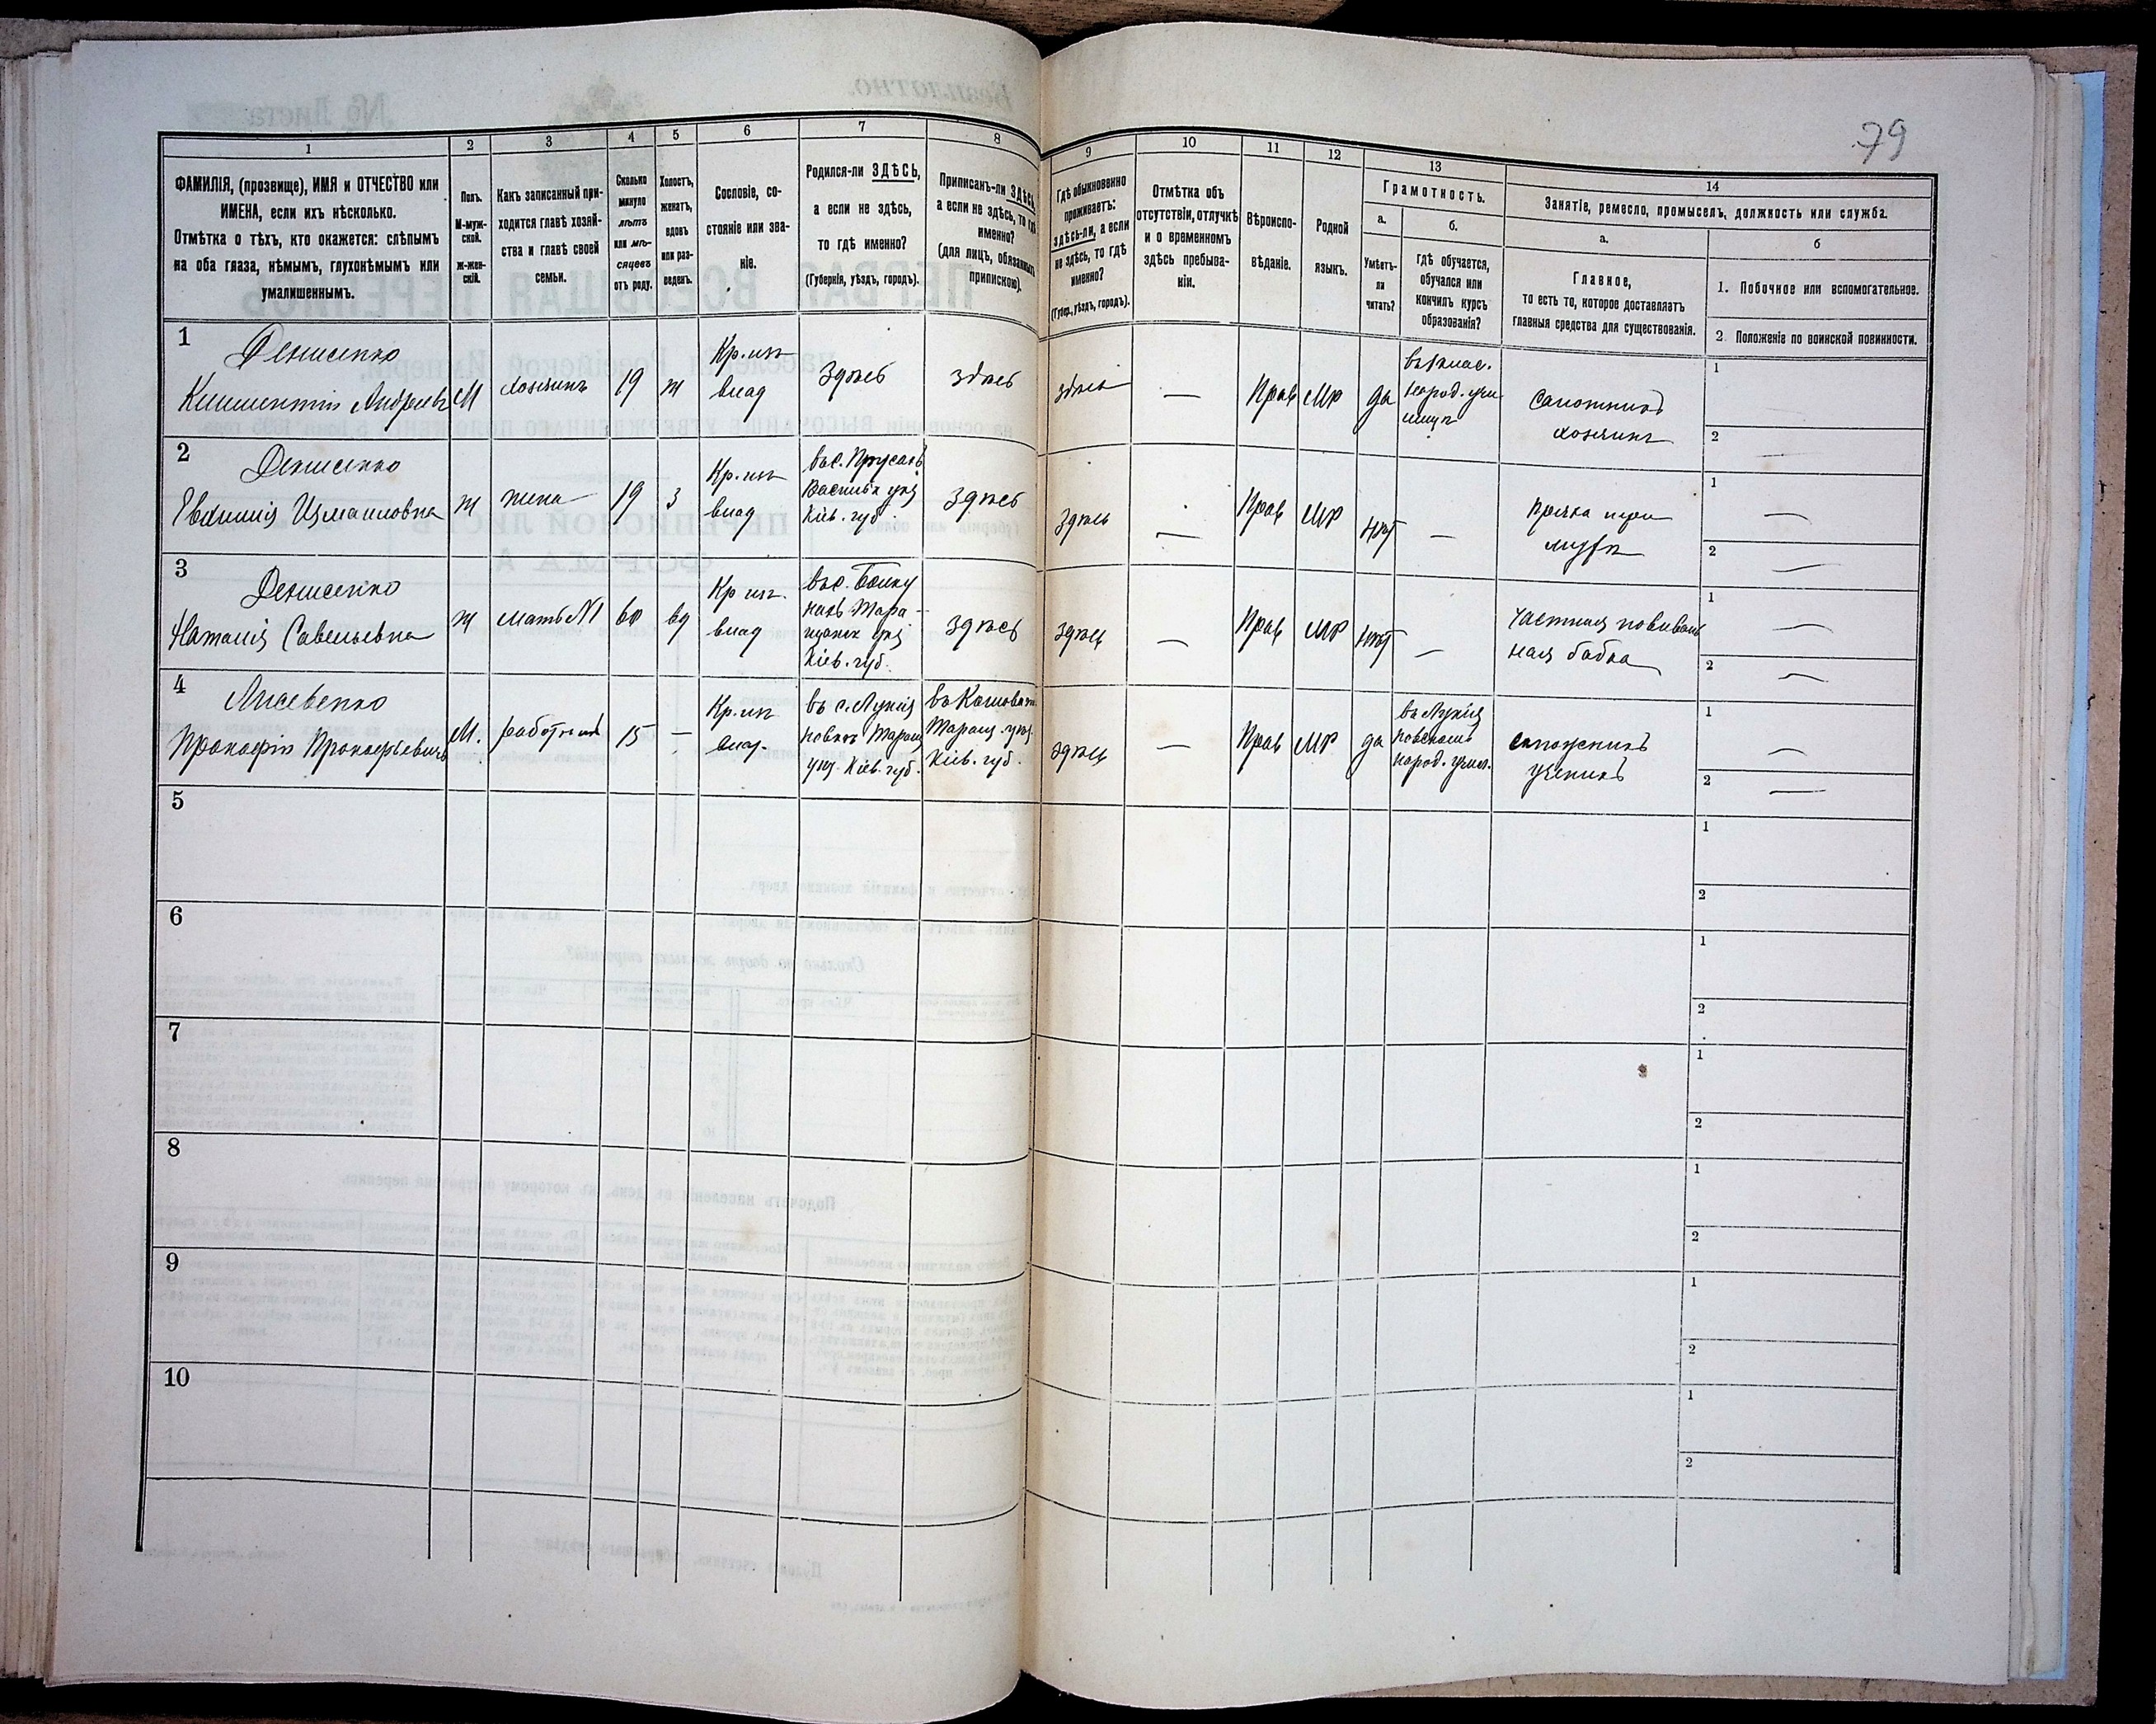 79
1
2
3
4
5
6
7
8
9
10
11
12
13
14
ФАМИЛІЯ, (прозвище), ИМЯ и ОТЧЕСТВО или
ИМЕНА, если ихъ нѣсколько.
Отмѣтка о тѣхъ, кто окажется: слѣпымъ
на оба глаза, нѣмымъ, глухонѣмымъ или
умалишеннымъ.
Полъ.
М-муж-
ской.
Ж-жен-
скій.
Какъ записанный при-
ходится главѣ хозяй-
ства и главѣ своей
семьи.
Сколько
минуло
лѣтъ
или мѣ-
сяцевъ
отъ роду.
Холостъ,
женатъ,
вдовъ
или раз-
веденъ.
Сословіе, со-
стояніе или зва-
ніе.
Родился-ли ЗДѢСЬ,
а если не здѣсь,
то гдѣ именно?
(Губернія, уѣздъ, городъ).
Приписанъ-ли ЗДѢСЬ,
а если не здѣсь, то гдѣ
именно?
(для лицъ, обязанныхъ
припискою).
Гдѣ обыкновенно
проживаетъ:
здѣсь-ли, а если
не здѣсь, то гдѣ
именно?
(Губер., уѣздъ, городъ).
Отмѣтка объ
отсутствіи, отлучкѣ
и о временномъ
здѣсь пребыва-
ніи.
Вѣроиспо-
вѣданіе.
Родной
языкъ.
Грамотность.
а.
Умѣетъ-
ли
читать?
б.
гдѣ обучается,
обучался или
кончилъ курсъ
образованія?
Занятіе, ремесло, промыселъ, должность или служба.
а.
Главное,
то есть то, которое доставляетъ
главныя средства для существованія.
б
1. Побочное или вспомогательное.
2. Положеніе по воинской повинности.
1
Денисенко
Климентій Андреевъ
М
хозяинъ
19
ж
Кр. из
влад
здѣсь
здѣсь
здѣсь
—
Прав
МР
да
народ. учи
лищѣ
Сапожникъ
хозяинъ
1
2
2
Денисенко
Евфимія Измаиловна
ж
жена
19
з
Кр. из
влад
въ с. Прусахъ
Васильк уѣз
Кіев. губ
здѣсь
здѣсь
—
Прав
МР
нѣт
—
Прачка при
мужѣ
1 —
2 —
3
Денисенко
Наталія Савельевна
ж
мать №1
60
вд
Кр из.
влад
въ с.
Тара-
щанск уѣз
Кіев. губ.
здѣсь
здѣсь
—
Прав
МР
нѣт
—
Частная повиваль
ная бабка
1 —
2 —
4
Лисевенко
Прокофій Прокофьевичъ
М.
работник
15
—
Кр. из
влад.
въ с. Лукія
новкѣ Таращ
уѣз. Кіев. губ.
Таращ. уѣз.
Кіев. губ.
здѣсь
—
Прав
МР
да
въ Лукія
новском
народ. учил.
сапожникъ
ученикъ
1 —
2 —
5
1
2
6
1
2
7
1
2
8
1
2
9
1
2
10
1
2